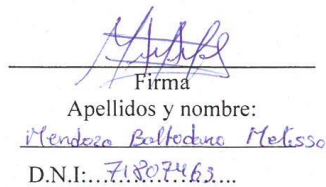 Firma
Apellidos y nombre:
Mendoza Baltodano Melisso
D.N.I:..71807463...